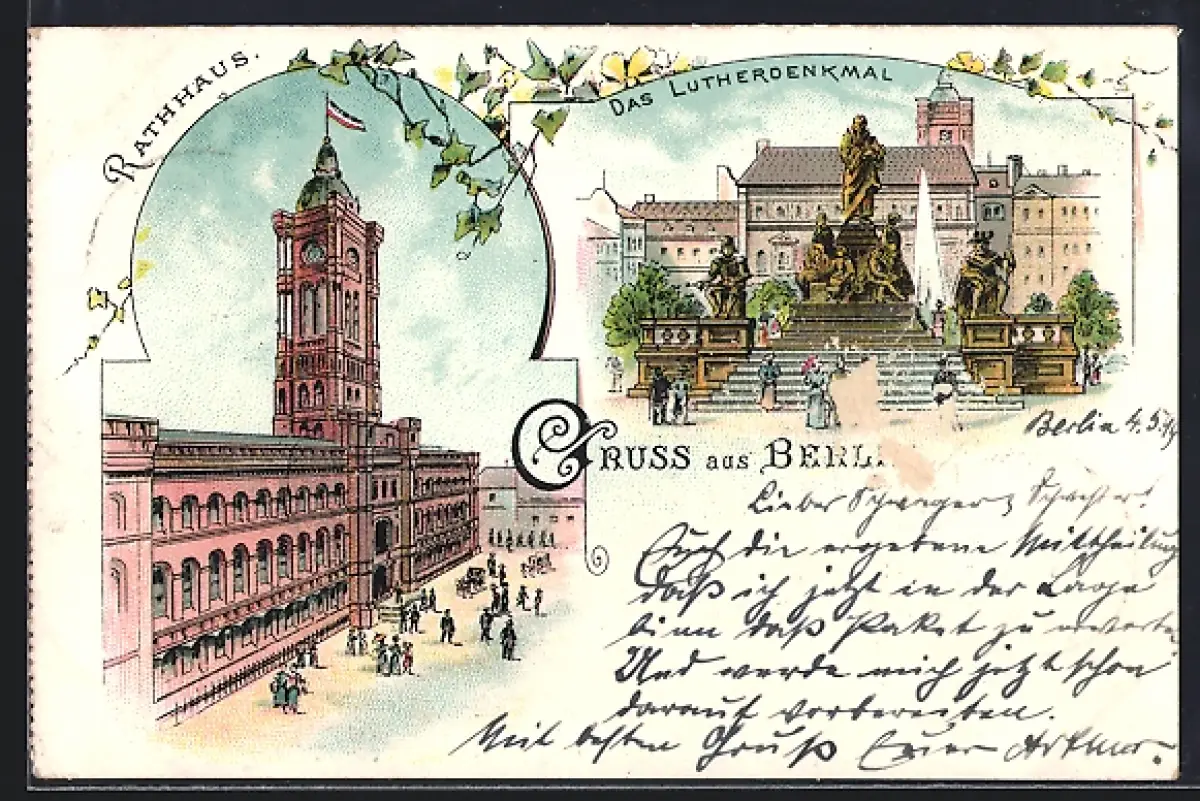 RATHHAUS.
DAS LUTHERDENKMAL
GRUSS aus BERLI
Berlin 4. 5.
Lieber Schwager & Schwester!
Euch die ergebene Mittheilung
daß ich jetzt in der Lage
binn daß Paket zu erwarten
Und werde mich jetzt schon
darauf vorbereiten.
Mit besten Gruß Euer